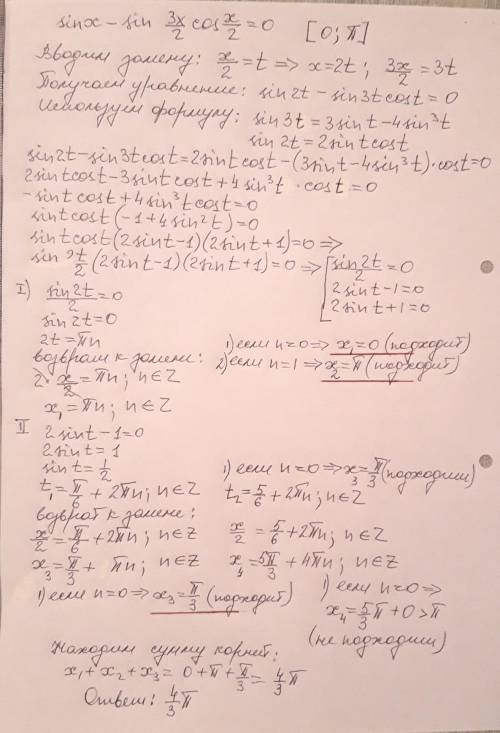 sinx - sin 3x/2 cos x/2 = 0 [0; π]
Вводим замену: x/2 = t => x = 2t; 3x/2 = 3t
Получаем уравнение: sin2t - sin3t cost = 0
Используем формулу: sin3t = 3sint - 4sin³t
sin2t = 2sint cost
sin2t - sin3t cost = 2sint cost - (3sint - 4sin³t)·cost = 0
2sint cost - 3sint cost + 4sin³t · cost = 0
- sint cost + 4sin³t cost = 0
sint cost (-1 + 4sin²t) = 0
sint cost (2sint - 1)(2sint + 1) = 0 =>
sin 2t/2 (2sint - 1)(2sint + 1) = 0 => [ sin2t/2 = 0
2sint - 1 = 0
2sint + 1 = 0
I) sin2t/2 = 0
sin2t = 0
2t = πn
возврат к замене:
2· x/2 = πn; n∈Z
x₁ = πn; n∈Z
1) если n=0 => x₁ = 0 (подходит)
2) если n=1 => x₂ = π (подходит)
II 2sint - 1 = 0
2sint = 1
sint = 1/2
t₁ = π/6 + 2πn; n∈Z
возврат к замене:
x/2 = π/6 + 2πn; n∈Z
x₃ = π/3 + πn; n∈Z
1) если n=0 => x₃ = π/3 (подходит)
1) если n=0 => x₃ = π/3 (подходит)
t₂ = 5/6 + 2πn; n∈Z
x/2 = 5/6 + 2πn; n∈Z
x₄ = 5π/3 + 4πn; n∈Z
1) если n=0 =>
x₄ = 5/3 π + 0 > π
(не подходит)
Находим сумму корней:
x₁ + x₂ + x₃ = 0 + π + π/3 = 4/3 π
Ответ: 4/3 π